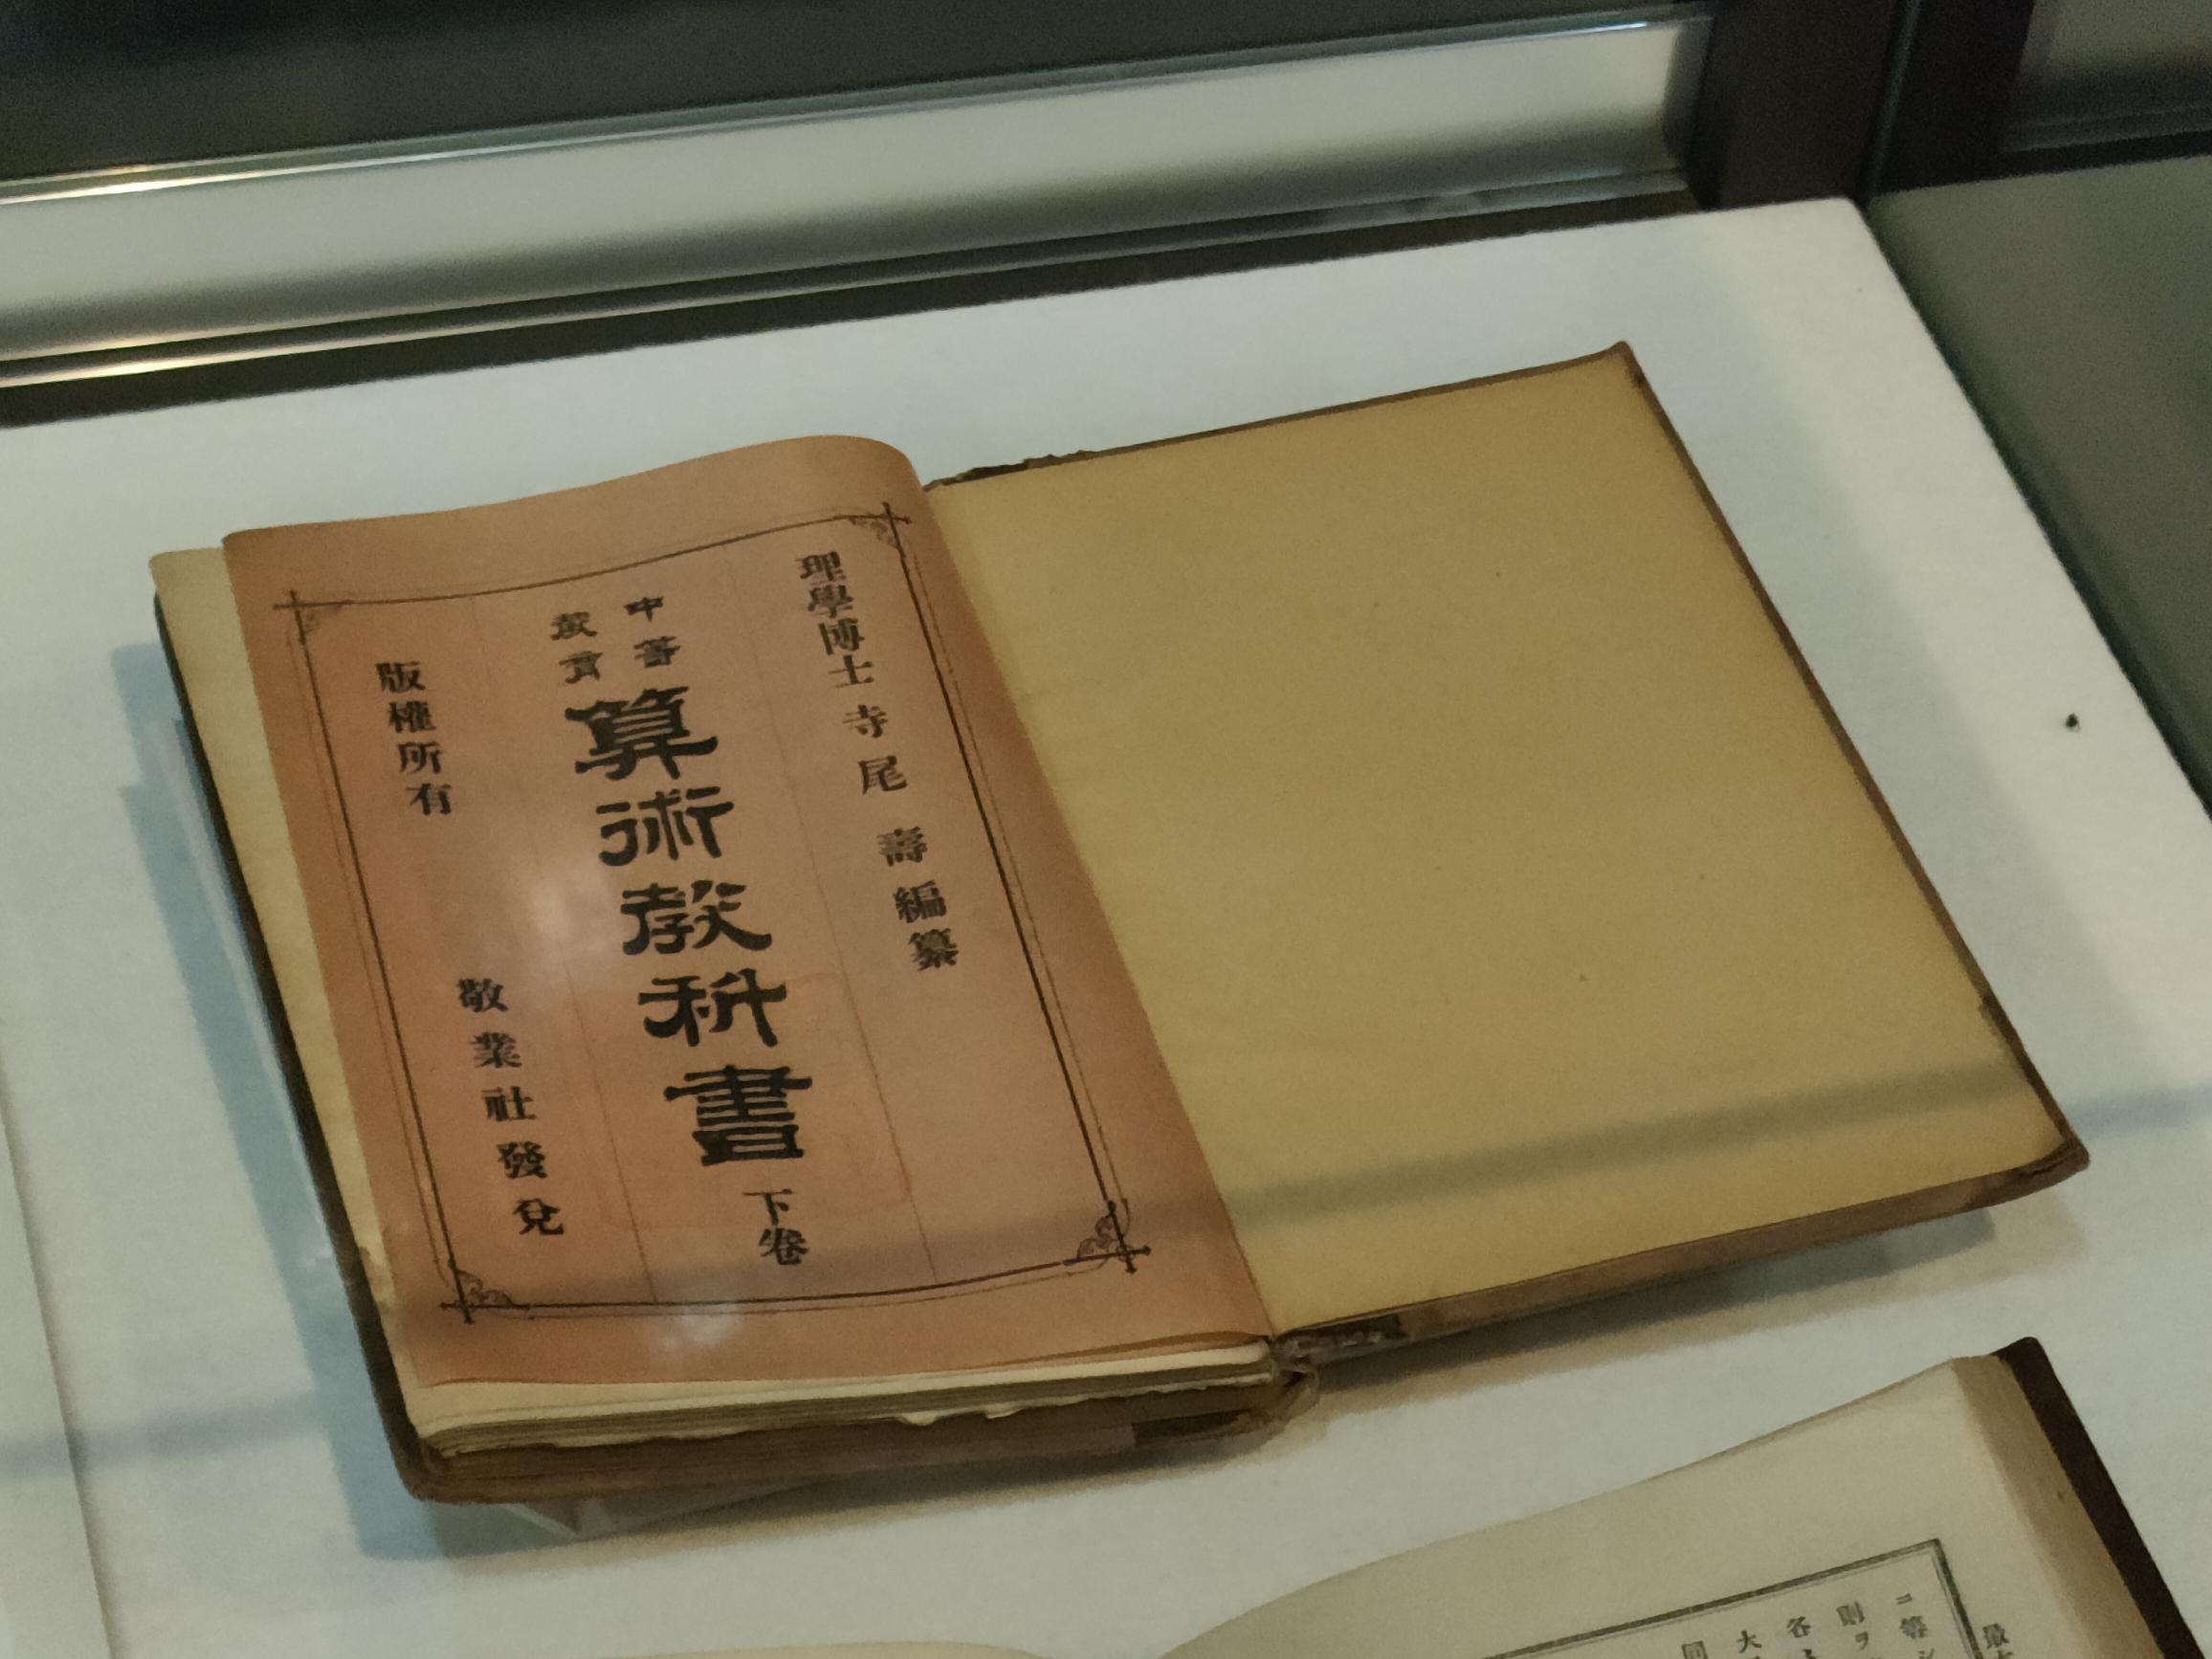 理學博士 寺尾 壽 編纂
中等
教育
算術教科書 下卷
版權所有
敬業社發兌
ニ等シ
則ヲ
各
大
同